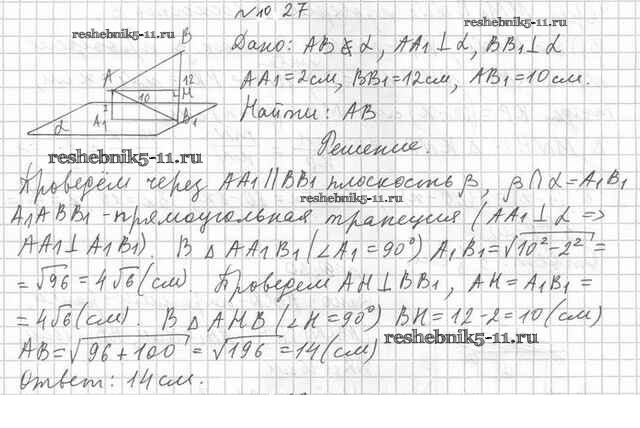 №10.27
reshebnik5-11.ru
reshebnik5-11.ru
Дано: AB ⊄ α, AA1 ⊥ α, BB1 ⊥ α
AA1 = 2см, BB1 = 12см, AB1 = 10см.
Найти: AB
B
A
12
H
10
2
A1
B1
α
reshebnik5-11.ru
Решение.
Проведём через AA1 || BB1 плоскость β, β ∩ α = A1B1
reshebnik5-11.ru
A1ABB1 - прямоугольная трапеция (AA1 ⊥ α =>
AA1 ⊥ A1B1). В △ AA1B1 (∠A1 = 90°) A1B1 = √10² - 2² =
= √96 = 4√6 (см). Проведем AH ⊥ BB1, AH = A1B1 =
= 4√6 (см). В △ AHB (∠H = 90°) BH = 12 - 2 = 10 (см)
AB = √96 + 100 = √196 = 14 (см)
reshebnik5-11.ru
Ответ: 14 см.